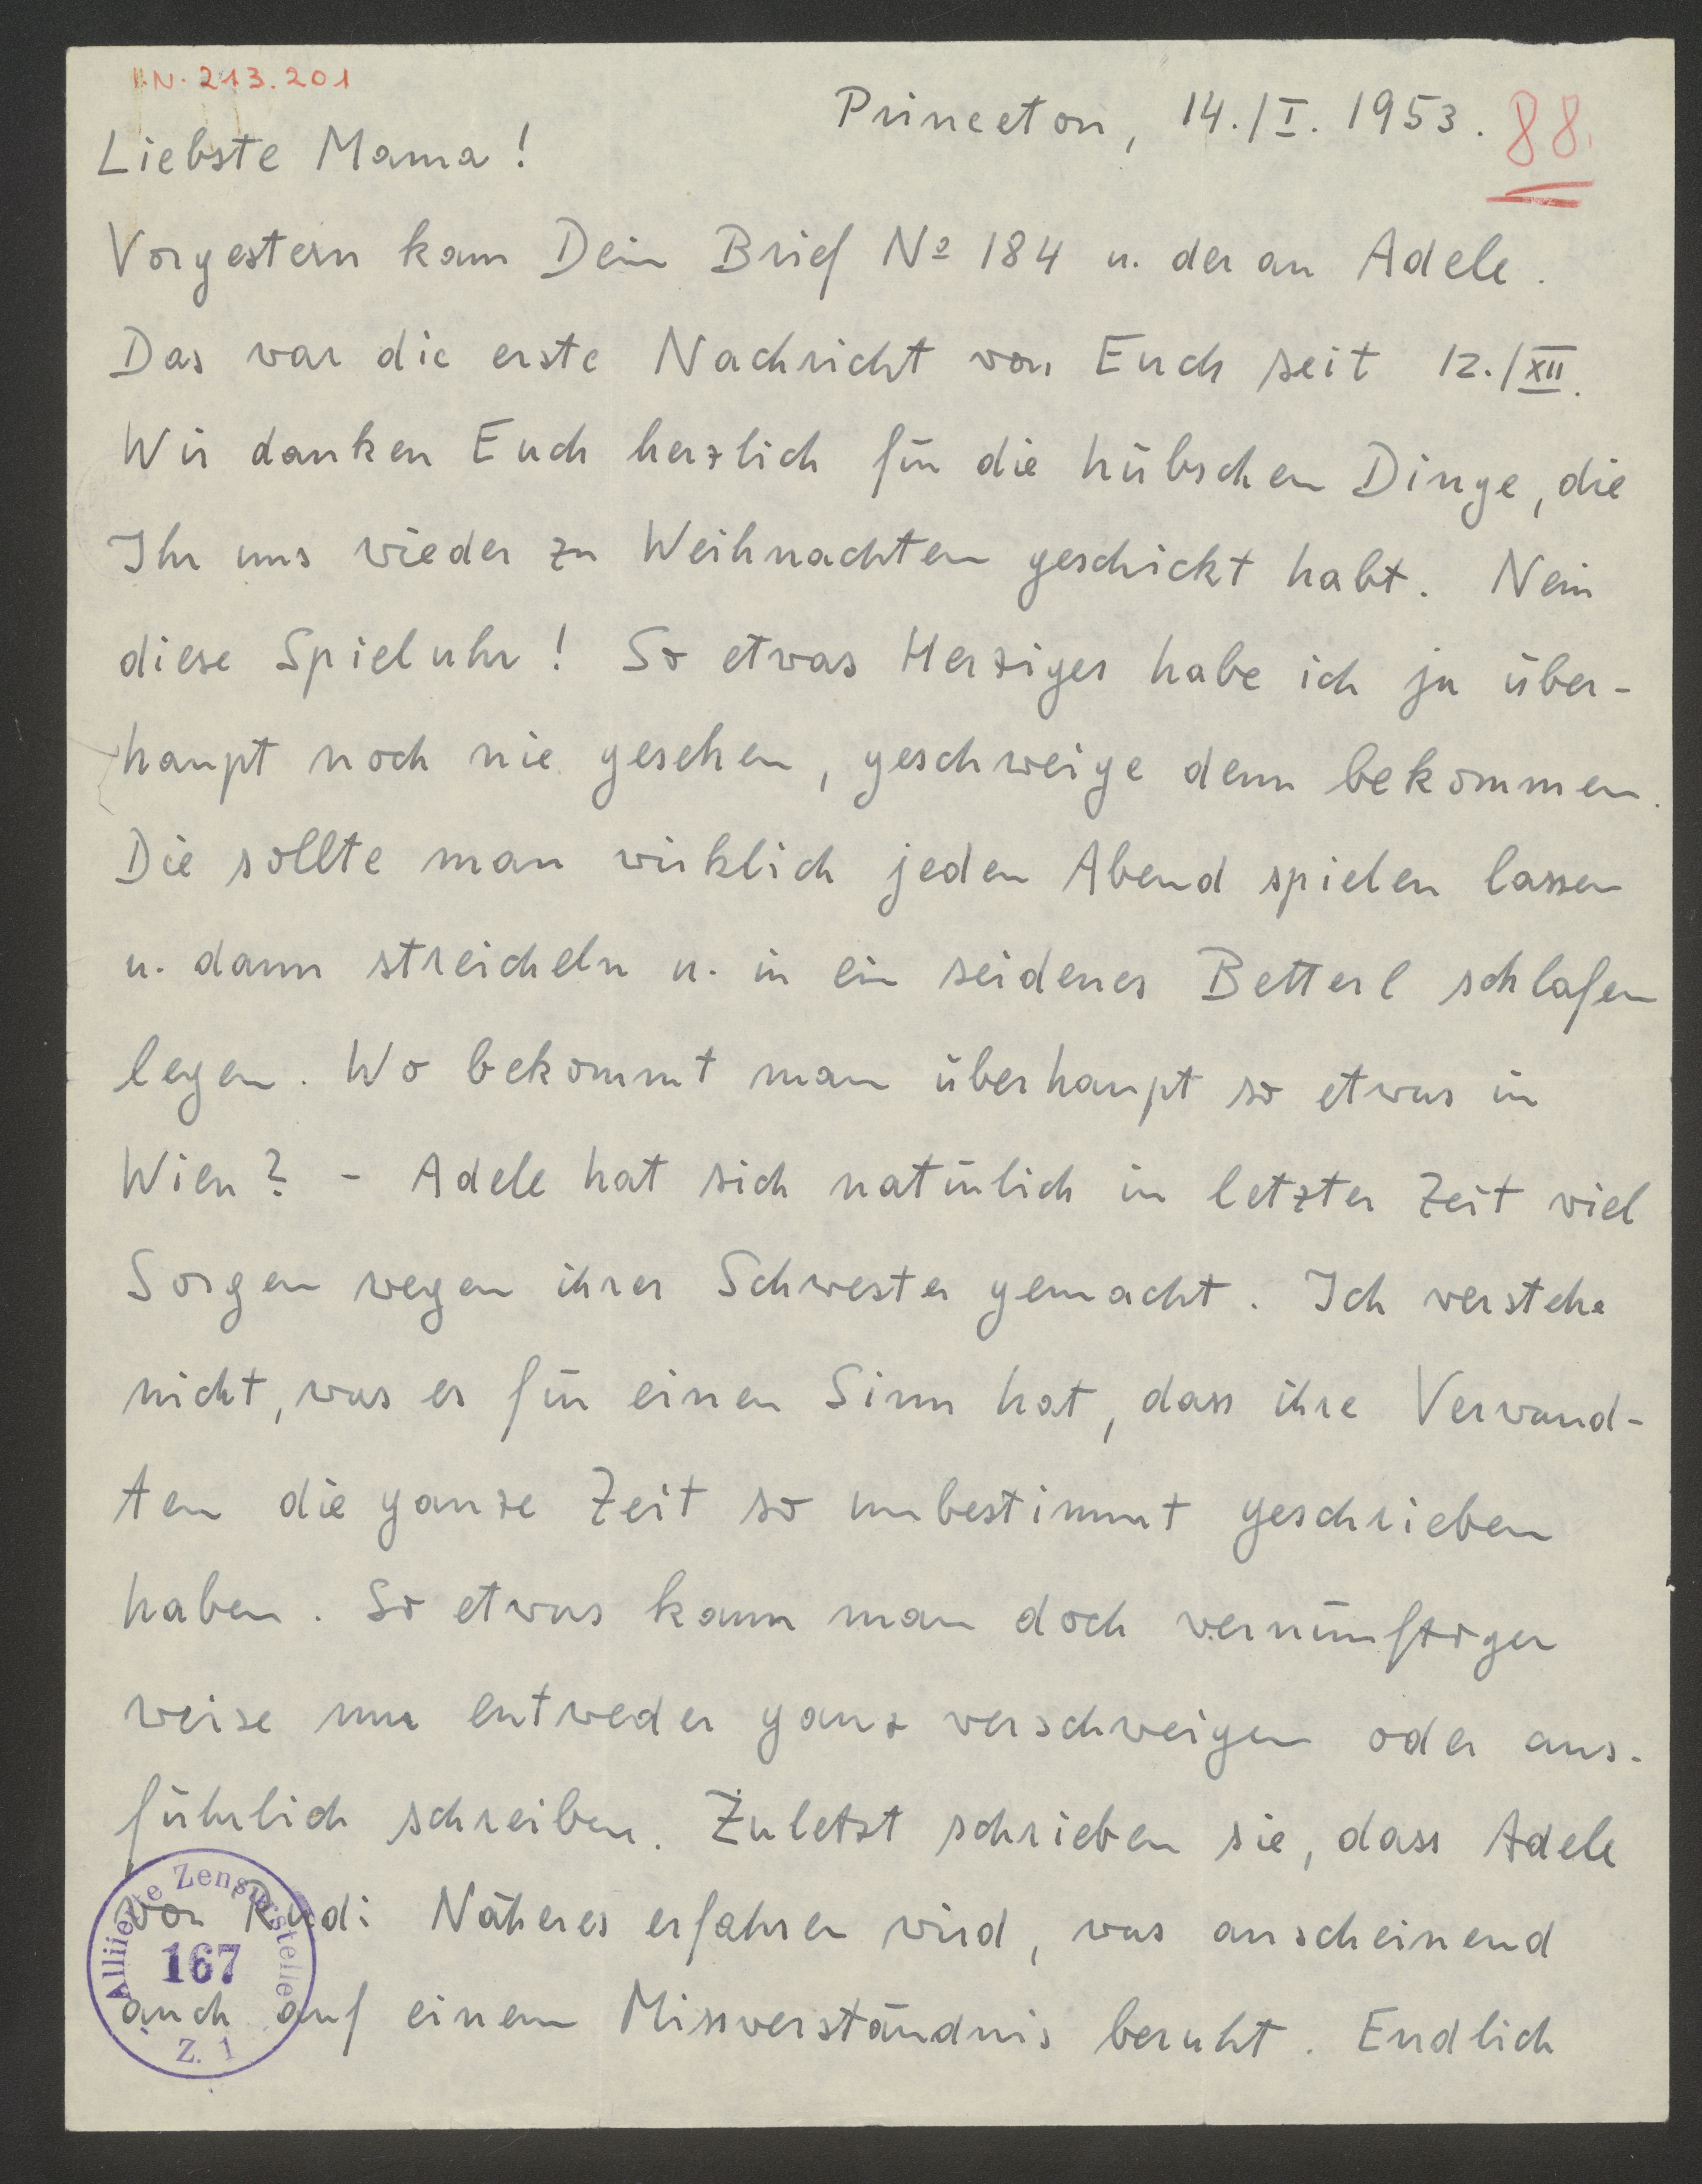 I.N. 213.201
Princeton, 14./I. 1953.
88.
Liebste Mama!
Vorgestern kam Dein Brief No 184 u. der an Adele.
Das war die erste Nachricht von Euch seit 12./XII.
Wir danken Euch herzlich für die hübschen Dinge, die
Ihr uns wieder zu Weihnachten geschickt habt. Nein
diese Spieluhr! So etwas Herziges habe ich ja über-
haupt noch nie gesehen, geschweige denn bekommen.
Die sollte man wirklich jeden Abend spielen lassen
u. dann streicheln u. in ein seidenes Betterl schlafen
legen. Wo bekommt man überhaupt so etwas in
Wien? - Adele hat sich natürlich in letzter Zeit viel
Sorgen wegen ihrer Schwester gemacht. Ich verstehe
nicht, was es für einen Sinn hat, dass ihre Verwand-
ten die ganze Zeit so unbestimmt geschrieben
haben. So etwas kann man doch vernünftiger
weise nur entweder ganz verschweigen oder aus-
führlich schreiben. Zuletzt schrieben sie, dass Adele
von Rudi Näheres erfahren wird, was anscheinend
auch auf einem Missverständnis beruht. Endlich
Alliierte Zensurstelle
167
Z. 1